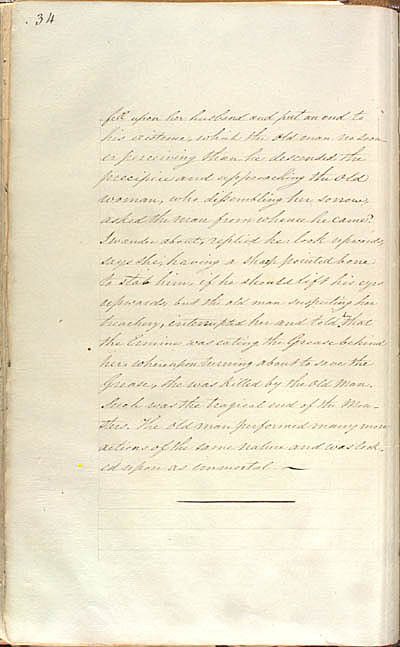 34
fell upon her husband and put an end to
his existence, which the old man no soon
er perceiving than he descended the
precipice and approaching the Old
woman, who dissembling her sorrow,
asked the man from whence he came?
I wander about, replied he. look upwards,
says she, having a sharp pointed bone
to stab him, if he should lift his eyes
upwards, but the old man suspecting her
treachery, interrupted her and told that
the Ermine was eating the Grease behind
her, whereupon turning about to save the
Grease, she was killed by the Old Man.
Such was the tragical end of the Mon-
sters. The old man performed many more
actions of the same nature and was look-
ed upon as immortal